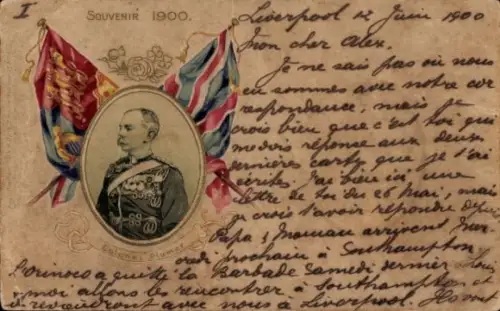 I
SOUVENIR 1900.
Liverpool 12 Juin 1900
Mon cher Alex.
Je ne sais pas où nous
en sommes avec notre cor
respondance, mais je
crois bien que c'est toi qui
me dois réponse aux deux
dernières cartes que je t'ai
écrites. J'ai bien ici une
lettre de toi du 26 Mai, mais
je crois t'avoir répondu depuis
Papa & Maman arrivent Mer
credi prochain à Southampton
L'Orinoco a quitté la Barbade Samedi dernier.
& moi allons les rencontrer à Southampton et
ils reviendront avec nous à Liverpool. Ils vont
Colonel